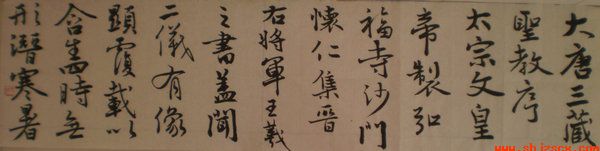 大唐三藏
聖教序
太宗文皇
帝製弘
福寺沙門
懷仁集晋
右將軍王羲
之書蓋聞
二儀有像
顯覆載以
含生四時無
形潛寒暑
www.shizscx.com